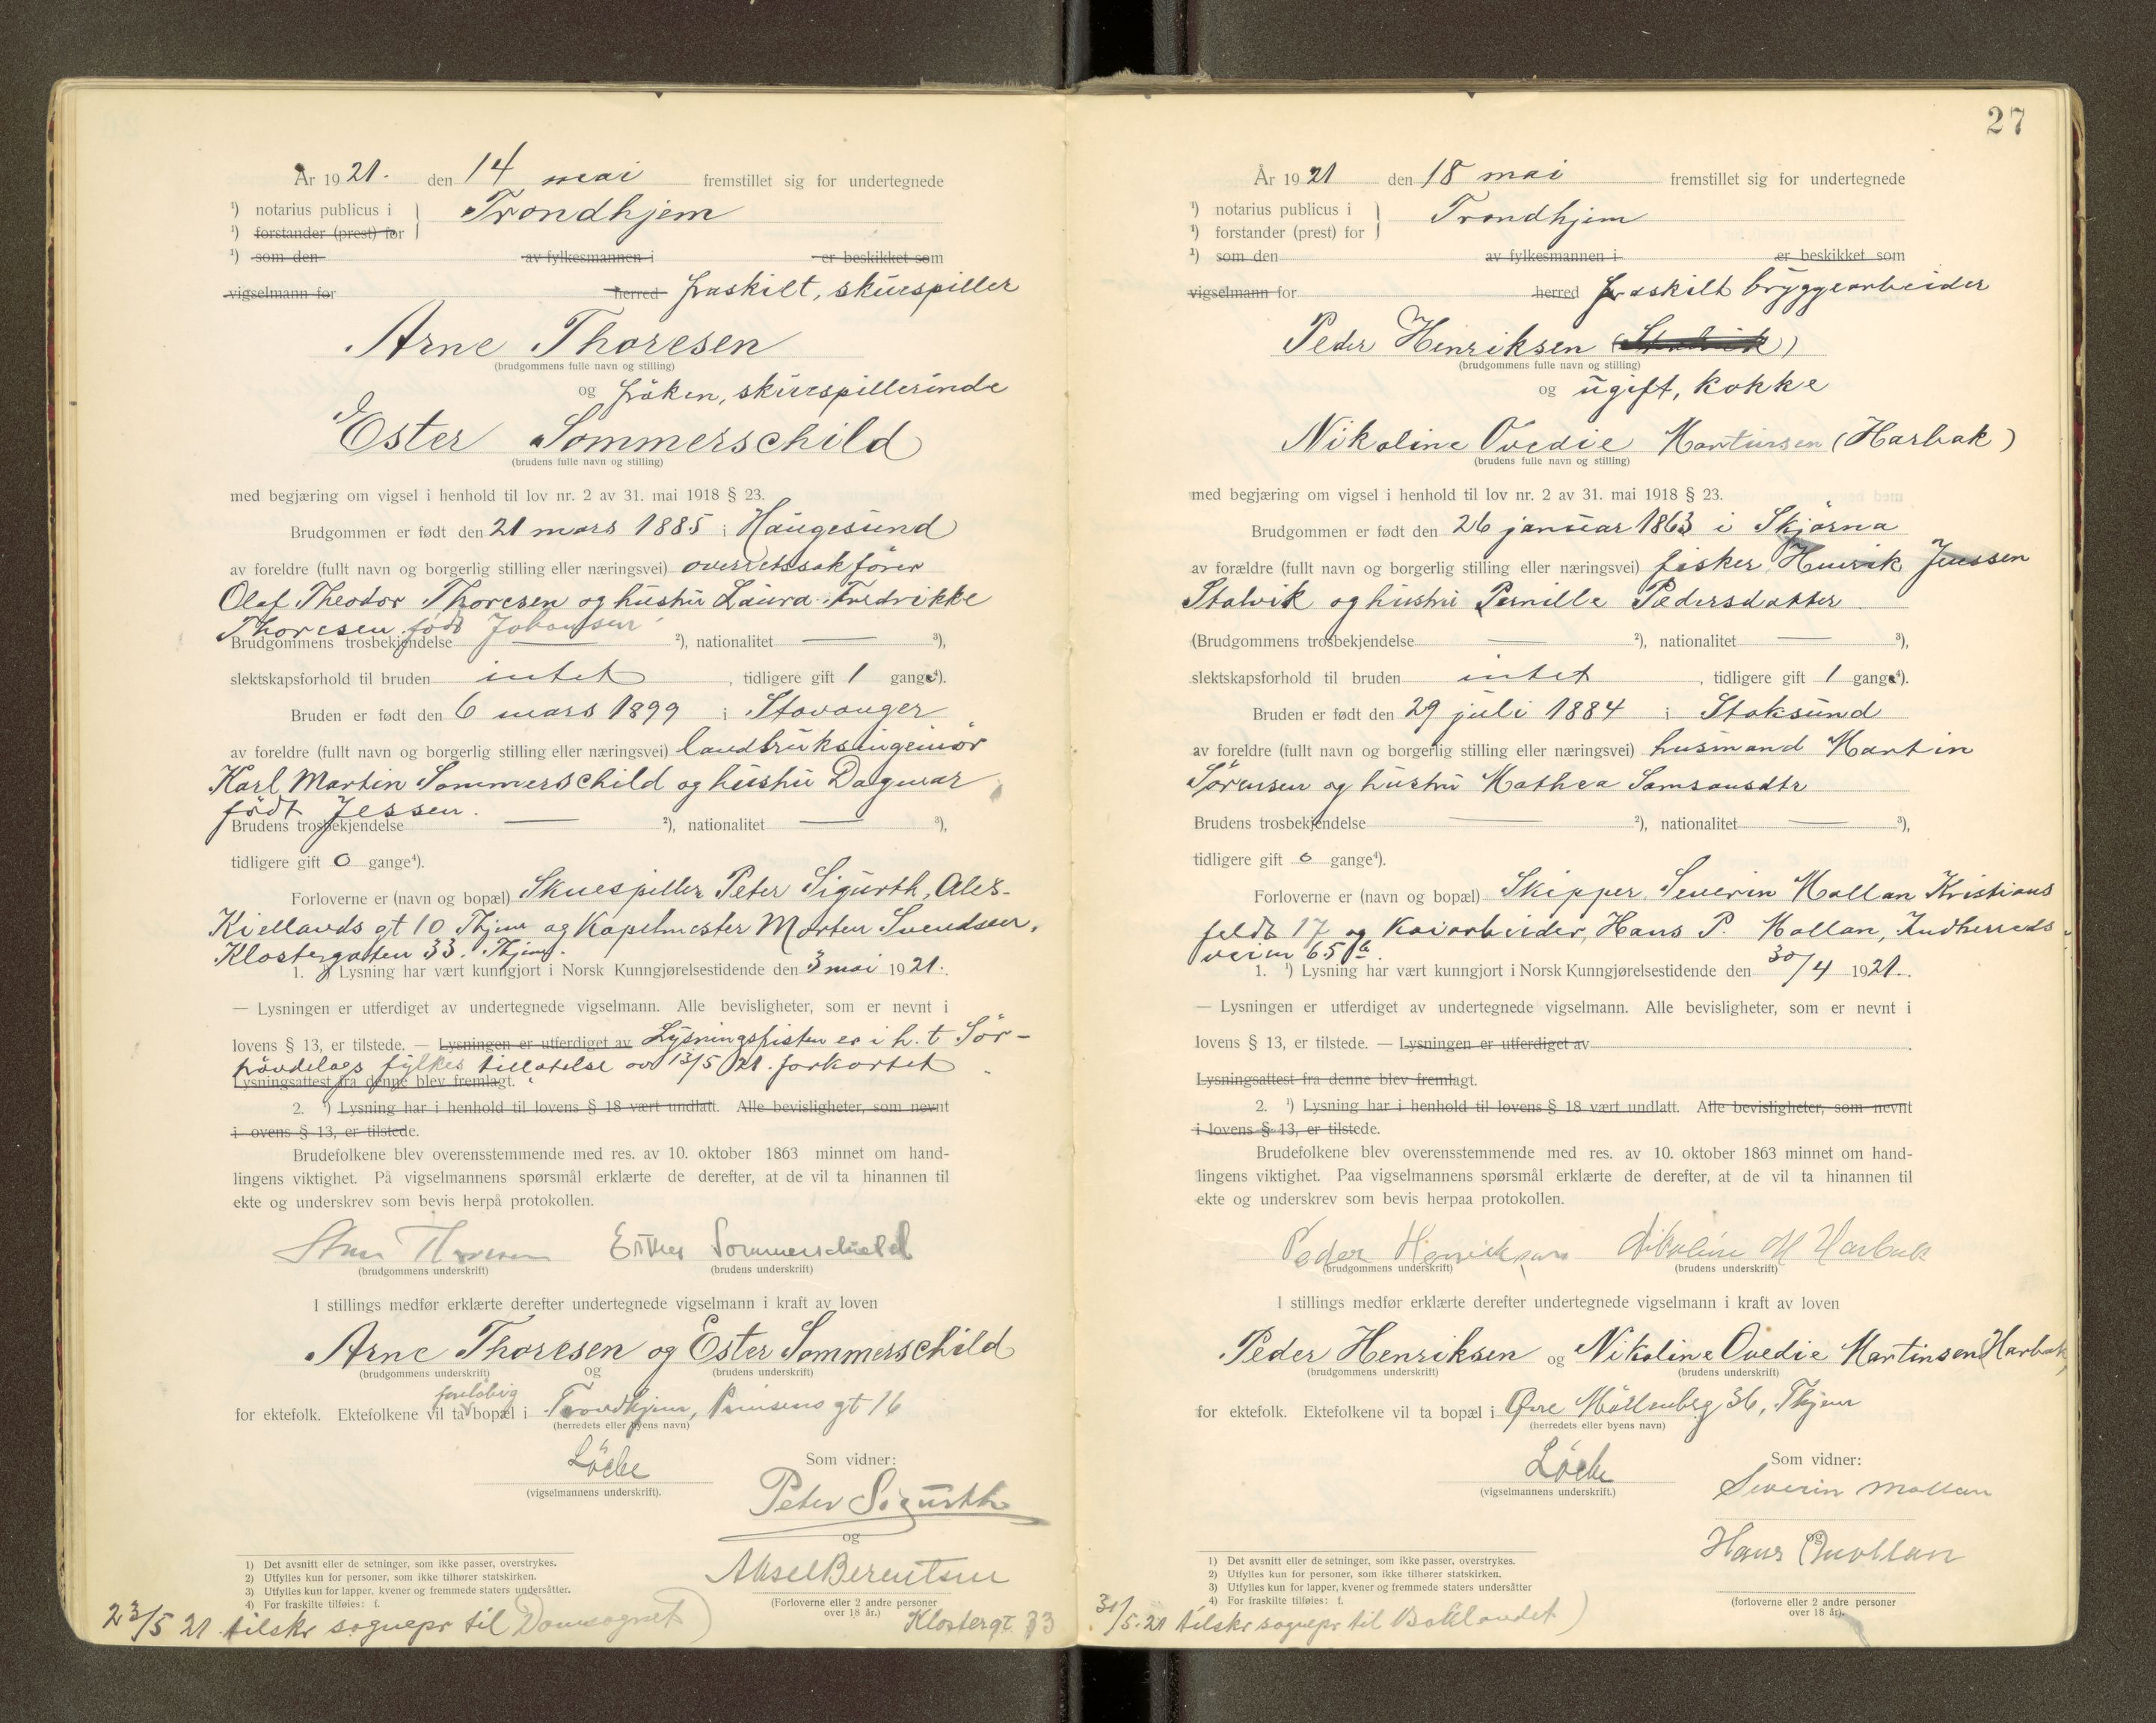 År 1921. den 14 mai fremstillet sig for undertegnede
¹) notarius publicus i } Trondhjem
¹) forstander (prest) for
¹) som den av fylkesmannen i er beskikket som
vigselmann for herred fraskilt, skuespiller
Arne Thoresen
(brudgommens fulle navn og stilling)
og frøken, skuespillerinde
Ester Sommerschild
(brudens fulle navn og stilling)
med begjæring om vigsel i henhold til lov nr. 2 av 31. mai 1918 § 23.
Brudgommen er født den 21 mars 1885 i Haugesund
av foreldre (fullt navn og borgerlig stilling eller næringsvei) overretssakfører
Olaf Theodor Thoresen og hustru Laura Fredrikke
Thoresen født Johansen
Brudgommens trosbekjendelse — ²), nationalitet — ³),
slektskapsforhold til bruden intet, tidligere gift 1 gange⁴).
Bruden er født den 6 mars 1899 i Stavanger
av foreldre (fullt navn og borgerlig stilling eller næringsvei) landbruksingeniør
Karl Martin Sommerschild og hustru Dagmar
født Jessen.
Brudens trosbekjendelse — ²), nationalitet — ³),
tidligere gift 0 gange⁴).
Forloverne er (navn og bopæl) Skuespiller Peter Sigurth, Alex-
Kiellands gt 10 Thjem og Kapelmester Morten Svendsen,
Klostergaten 33. Thjem.
1. ¹) Lysning har vært kunngjort i Norsk Kunngjørelsestidende den 3 mai 1921.
— Lysningen er utferdiget av undertegnede vigselmann. Alle bevisligheter, som er nevnt i
lovens § 13, er tilstede. — Lysningen er utferdiget av Lysningsfristen er i h. t Sør-
trøndelags fylkes tillatelse av 13/5 21. forkortet
Lysningsattest fra denne blev fremlagt.
2. ¹) Lysning har i henhold til lovens § 18 vært undlatt. Alle bevisligheter, som nevnt
i lovens § 13, er tilstede.
Brudefolkene blev overensstemmende med res. av 10. oktober 1863 minnet om hand-
lingens viktighet. På vigselmannens spørsmål erklærte de derefter, at de vil ta hinannen til
ekte og underskrev som bevis herpå protokollen.
Arne Thoresen Esther Sommerschield
(brudgommens underskrift) (brudens underskrift)
I stillings medfør erklærte derefter undertegnede vigselmann i kraft av loven
Arne Thoresen og Ester Sommerschild
(brudgommens underskrift) og (brudens underskrift)
foreløbig
for ektefolk. Ektefolkene vil ta bopæl i Trondhjem, Prinsens gt 16
(herredets eller byens navn)
Löcke
(vigselmannens underskrift).
Som vidner:
Peter Sigurth
og
Aksel Berentsen
(Forloverne eller 2 andre personer
over 18 år.)
Klostergt 33
1) Det avsnitt eller de setninger, som ikke passer, overstrykes.
2) Utfylles kun for personer, som ikke tilhører statskirken.
3) Utfylles kun for lapper, kvener og fremmede staters undersåtter.
4) For fraskilte tilføies: f.
23/5 21 tilskr sognepr til Domsognet)
27
År 1921 den 18 mai fremstillet sig for undertegnede
¹) notarius publicus i } Trondhjem
¹) forstander (prest) for
¹) som den av fylkesmannen i er beskikket som
vigselmann for herred fraskilt bryggearbeider
Peder Henriksen (Stalvik)
(brudgommens fulle navn og stilling)
og ugift, kokke
Nikoline Ovedie Martinsen (Harbak)
(brudens fulle navn og stilling)
med begjæring om vigsel i henhold til lov nr. 2 av 31. mai 1918 § 23.
Brudgommen er født den 26 januar 1863 i Skjørna
av forældre (fullt navn og borgerlig stilling eller næringsvei) fisker Henrik Jenssen
Stalvik og hustru Pernille Pedersdatter
(Brudgommens trosbekjendelse — ²), nationalitet — ³),
slektskapsforhold til bruden intet, tidligere gift 1 gange⁴).
Bruden er født den 29 juli 1884 i Stoksund
av foreldre (fullt navn og borgerlig stilling eller næringsvei) husmand Martin
Sørensen og hustru Mathea Samsonsdtr
Brudens trosbekjendelse — ²), nationalitet — ³),
tidligere gift 0 gange⁴).
Forloverne er (navn og bopæl) Skipper Severin Mollan Kristians
feldt 17 og Kaiarbeider, Hans P. Mollan, Indherreds
veien 65 a.
1. ¹) Lysning har vært kunngjort i Norsk Kunngjørelsestidende den 30/4 1921.
— Lysningen er utferdiget av undertegnede vigselmann. Alle bevisligheter, som er nevnt i
lovens § 13, er tilstede. — Lysningen er utferdiget av
Lysningsattest fra denne blev fremlagt.
2. ¹) Lysning har i henhold til lovens § 18 vært undlatt. Alle bevisligheter, som nevnt
i lovens § 13, er tilstede.
Brudefolkene blev overensstemmende med res. av 10. oktober 1863 minnet om hand-
lingens viktighet. Paa vigselmannens spørsmål erklærte de derefter, at de vil ta hinannen til
ekte og underskrev som bevis herpaa protokollen.
Peder Henriksen Nikoline M Harbak
(brudgommens underskrift) (brudens underskrift)
I stillings medfør erklærte derefter undertegnede vigselmann i kraft av loven
Peder Henriksen og Nikoline Ovedie Martinsen (Harbak)
(brudgommens underskrift) (brudens underskrift)
for ektefolk. Ektefolkene vil ta bopæl i Øvre Møllenberg 36, Thjem
(herredets eller byens navn)
Löcke
(vigselmannens underskrift.)
Som vidner:
Severin Mollan
og
Hans P Mollan
(forloverne eller 2 andre personer
over 18 år).
1) Det avsnitt eller de setninger, som ikke passer, overstrykes.
2) Utfylles kun for personer, som ikke tilhører statskirken.
3) Utfylles kun for lapper, kvener og fremmede staters undersåtter
4) For fraskilte tilføies: f.
31/5.21 tilskr sognepr til Baklandet)